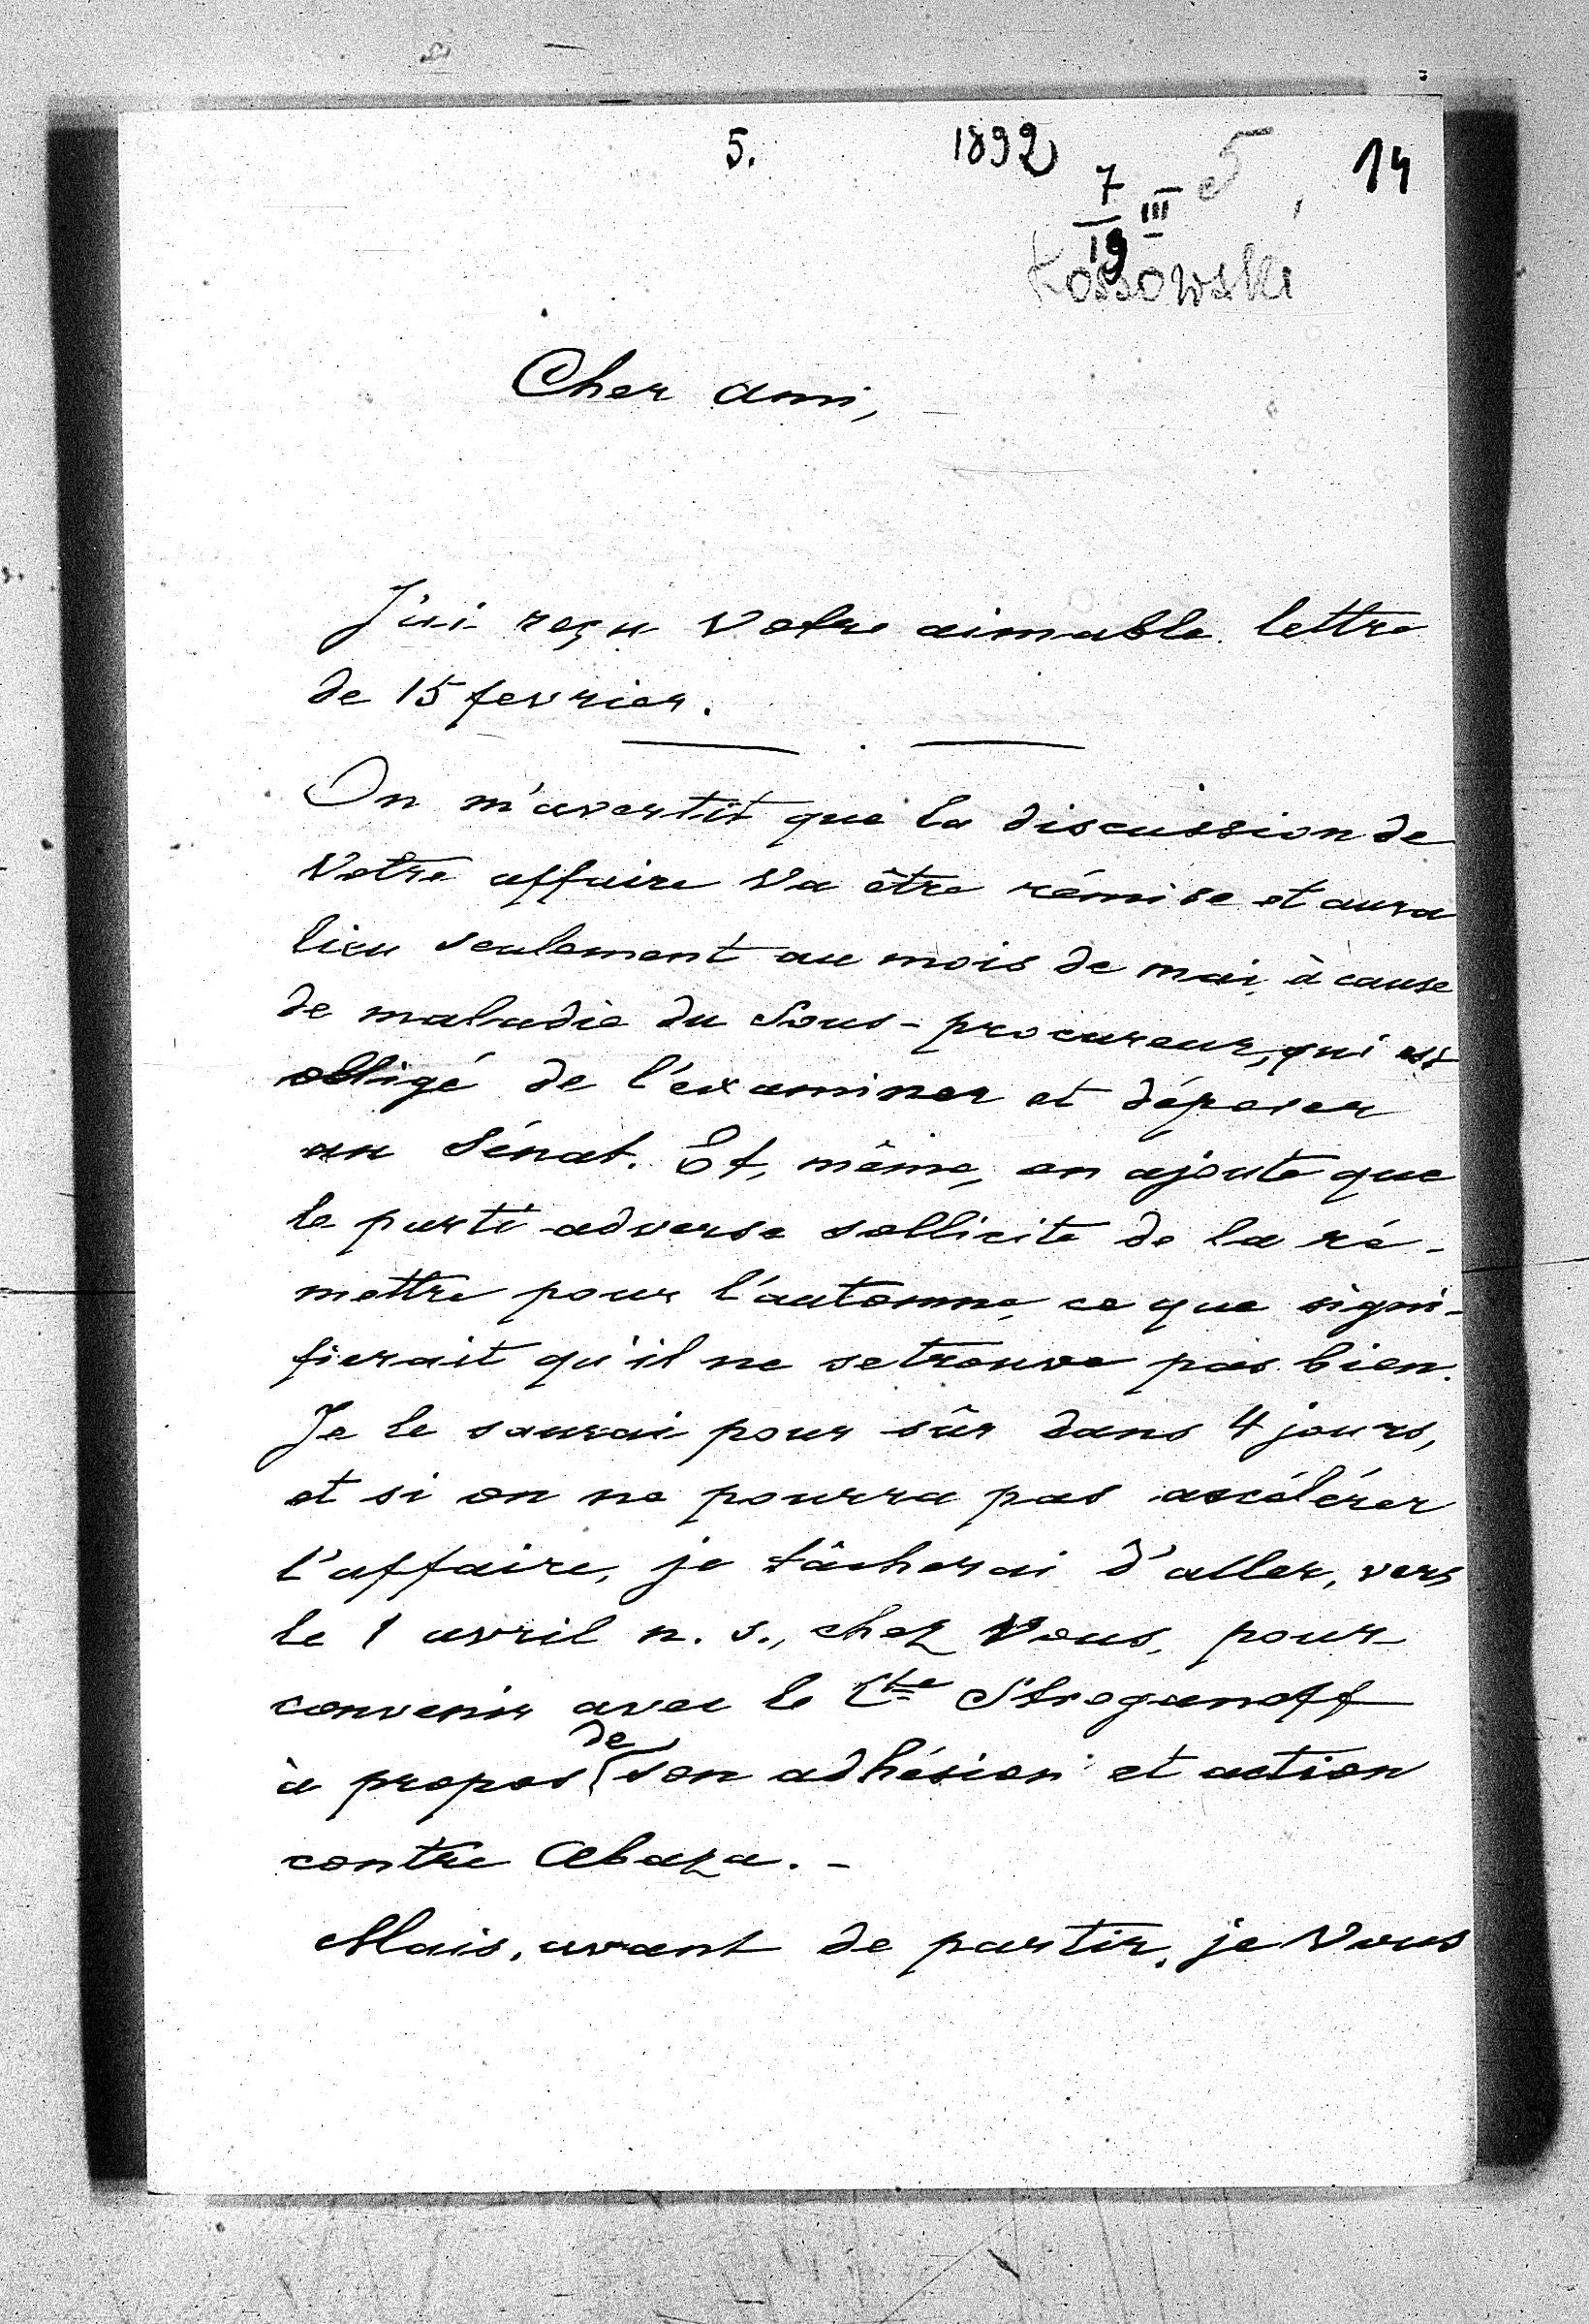 5. 1892 5, 14
7/19 III
Kossowski
Cher ami,
J'ai reçu Votre aimable lettre
de 15 fevrier.
On m'avertit que la discussion de
Votre affaire va être rémise et aura
lieu seulement au mois de mai, à cause
de maladie du Sous-procureur, qui est
obligé de l'examiner et déposer
au Sénat. Et, même, on ajoute que
le parti adverse sollicite de la ré-
mettre pour l'automne, ce que signi-
fierait qu'il ne se trouve pas bien.
Je le saurai pour sûr dans 4 jours,
et si on ne pourra pas accélérer
l'affaire, je tâcherai d'aller, vers
le 1 avril n. s., chez Vous, pour
convenir avec le Cte Stroganoff
à propos de son adhésion et action
contre Abaza. -
Mais, avant de partir, je Vous